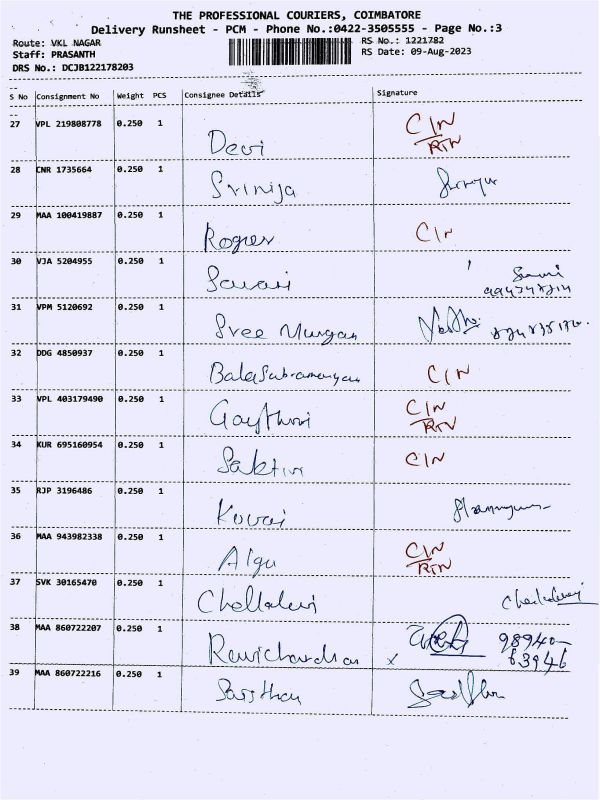 THE PROFESSIONAL COURIERS, COIMBATORE
Delivery Runsheet - PCM - Phone No.:0422-3505555 - Page No.:3
Route: VKL NAGAR RS No.: 1221782
Staff: PRASANTH RS Date: 09-Aug-2023
DRS No.: DCJB122178203
S No Consignment No Weight PCS Consignee Details Signature
27 VPL 219808778 0.250 1 Devi C/N
RTN
28 CNR 1735664 0.250 1 Srinija
29 MAA 100419887 0.250 1 Roger C/N
30 VJA 5204955 0.250 1
31 VPM 5120692 0.250 1 Sree Murgan
32 DDG 4850937 0.250 1 Balasubramanyan C/N
33 VPL 403179490 0.250 1 Gaythri C/N
RTN
34 KUR 695160954 0.250 1 Saktivi C/N
35 RJP 3196486 0.250 1 Kovai
36 MAA 943982338 0.250 1 Algu C/N
RTN
37 SVK 30165470 0.250 1
38 MAA 860722207 0.250 1 Ravichandran x 98940-
63946
39 MAA 860722216 0.250 1